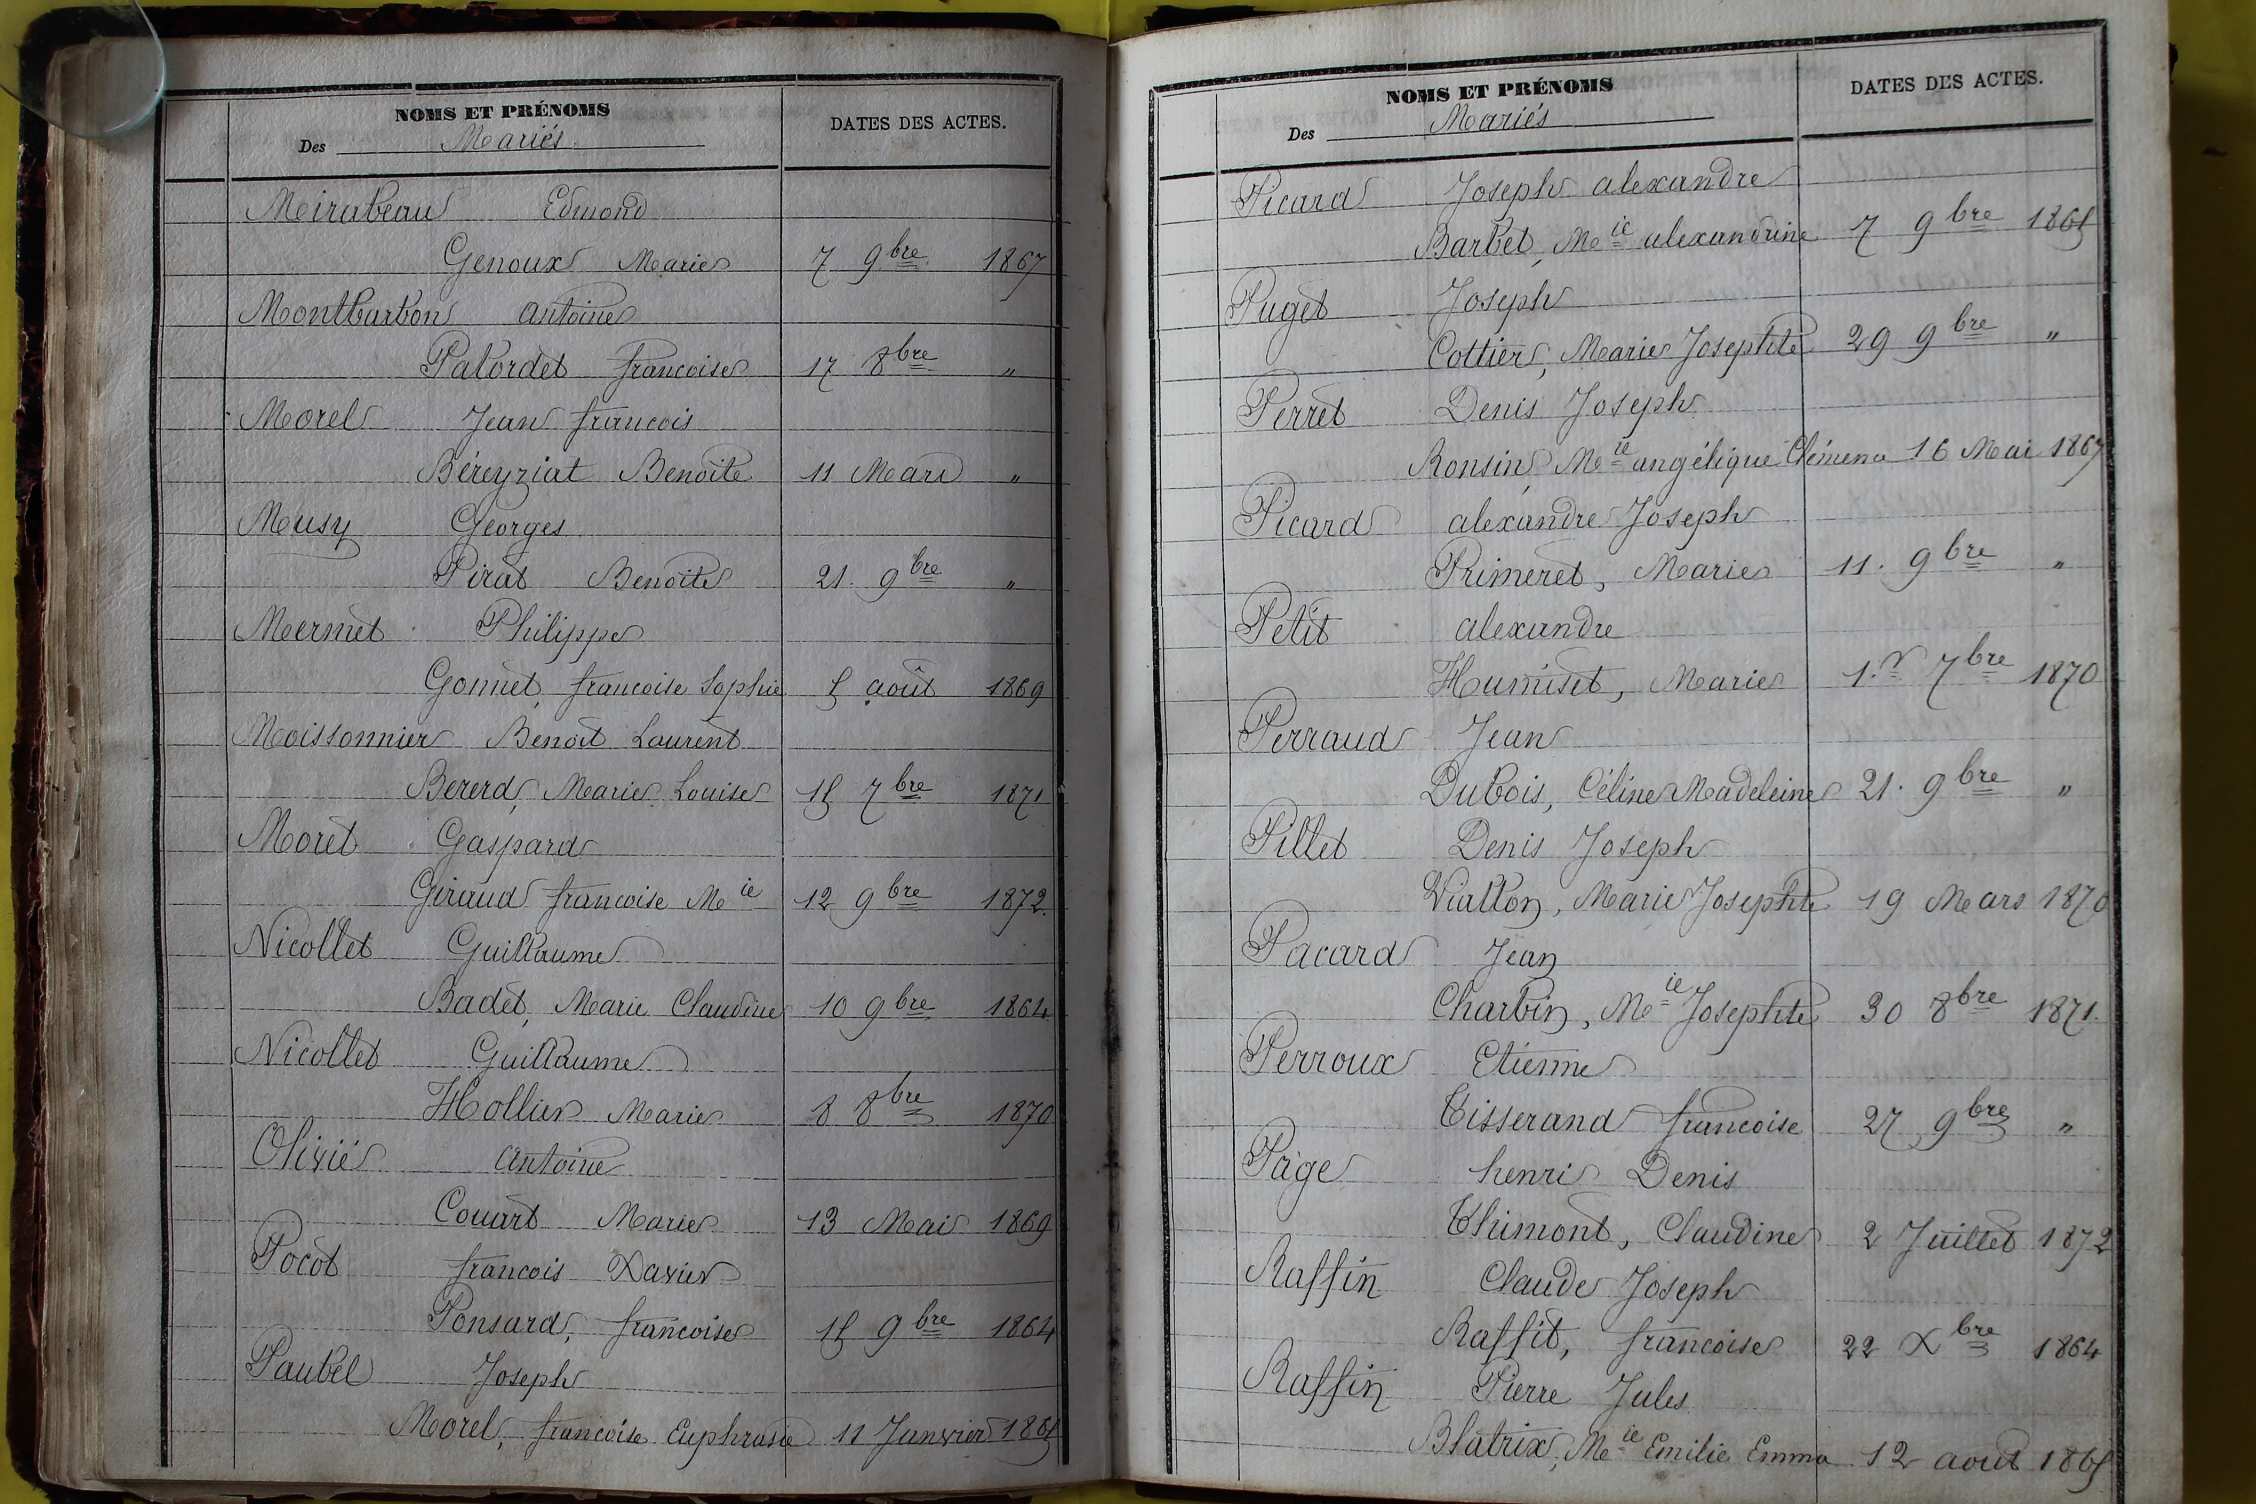 NOMS ET PRÉNOMS
Des Mariés
DATES DES ACTES.
Mirabeau Edmond
Genoux Marie 7 9bre 1867
Montbarbon antoine
Palordet francoise 17 8bre "
Morel Jean francois
Béreyziat Benoite 11 Mars "
Musy Georges
Pirat Benoite 21. 9bre "
Mermet Philippe
Gonnet, francoise Sophie 5 août 1869
Moissonnier Benoit Laurent
Bererd, Marie Louise 15 7bre 1871
Moret Gaspard
Giraud francoise Mie 12 9bre 1872.
Nicollet Guillaume
Badet, Marie Claudine 10 9bre 1864
Nicollet Guillaume
Hollier Marie 8 8bre 1870
Olivié antoine
Couart Marie 13 Mai 1869
Pocot francois Xavier
Ponsard, francoise 15 9bre 1864
Paubel Joseph
Morel, francoise Euphrasie 11 Janvier 1865
NOMS ET PRÉNOMS
Des Mariés
DATES DES ACTES.
Picard Joseph alexandre
Barbet, Mie alexandrine 7 9bre 1865
Puget Joseph
Cottier, Marie Josephte 29 9bre "
Perret Denis Joseph
Ronsin, Mie angélique Clémena 16 Mai 1867
Picard alexandre Joseph
Primeret, Marie 11. 9bre "
Petit alexandre
Humiset, Marie 1.r 7bre 1870
Perraud Jean
Dubois, Céline Madeleine 21. 9bre "
Pillet Denis Joseph
Viallon, Marie Josephte 19 Mars 1870
Pacard Jean
Charbin, Mie Josephte 30 8bre 1871.
Perroux Etienne
Tisserand francoise 27 9bre "
Page henri Denis
Thimont, Claudine 2 Juillet 1872
Raffin Claude Joseph
Raffit, francoise 22 Xbre 1864
Raffin Pierre Jules
Blatrix, Mie Emilie Emma 12 aout 1865